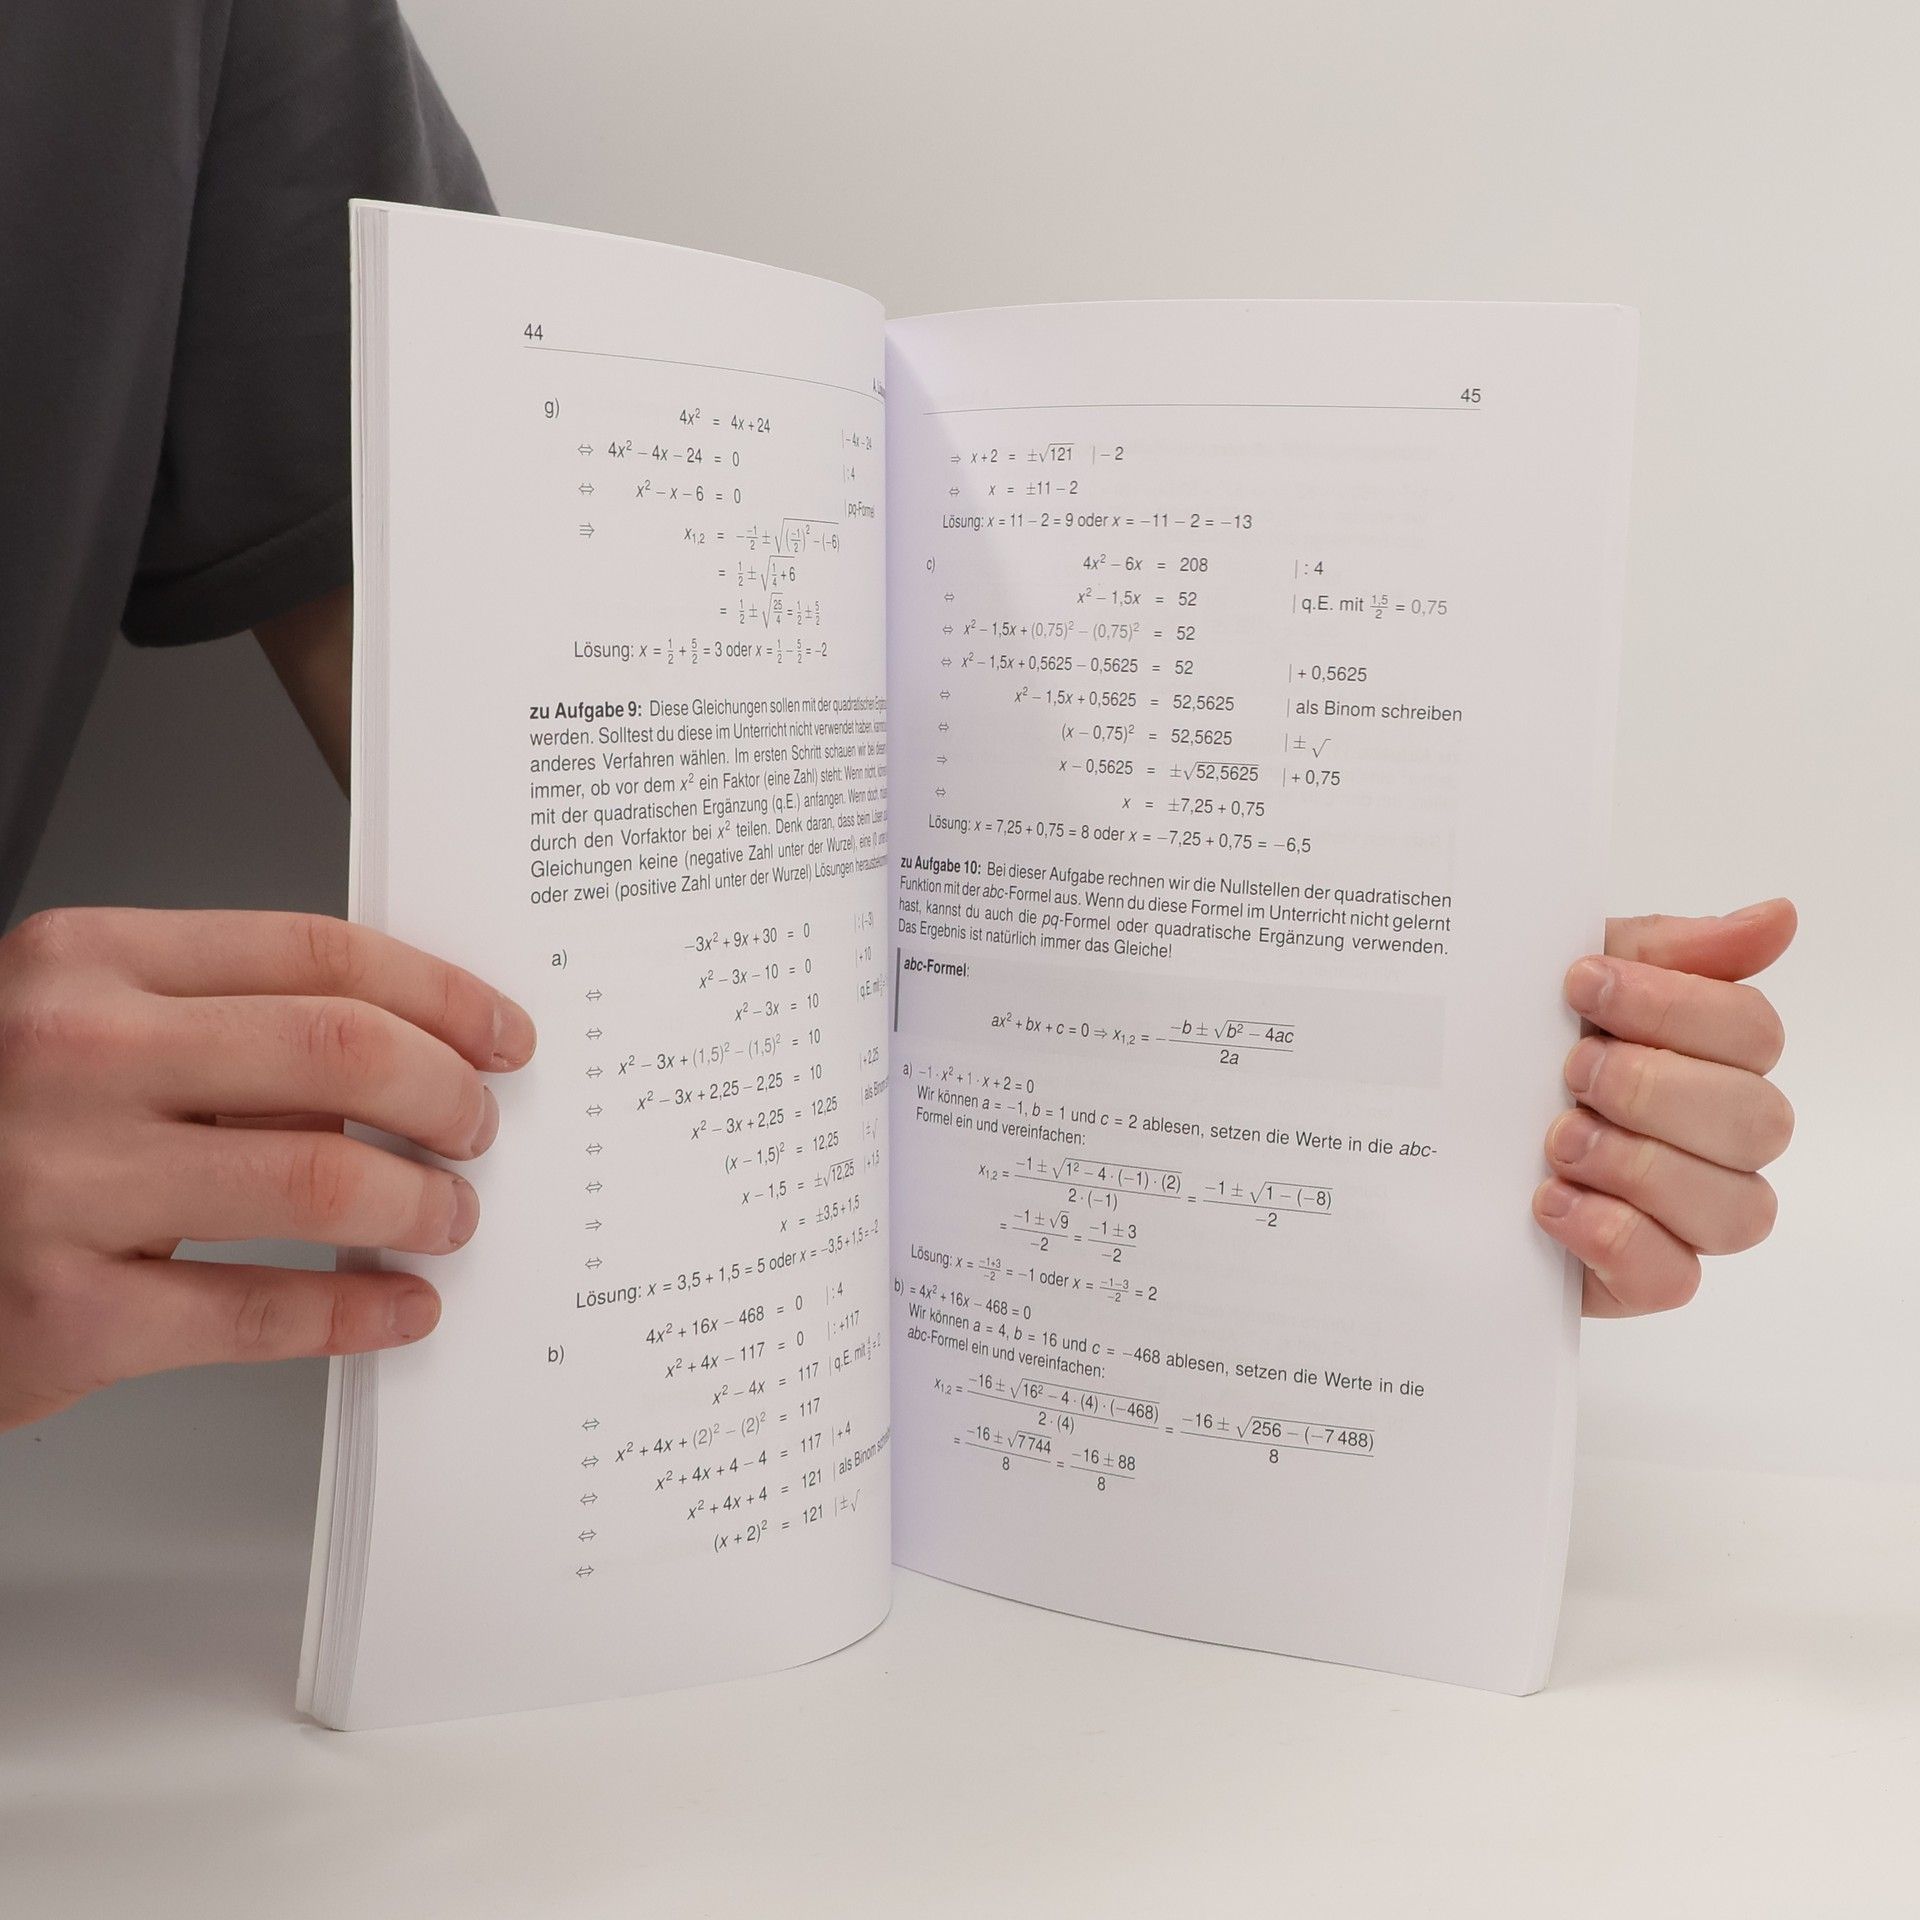 44
g) 4x² = 4x + 24 | − 4x − 24
⇔ 4x² − 4x − 24 = 0 | : 4
⇔ x² − x − 6 = 0 | pq-Formel
⇒ x₁,₂ = −\frac{−1}{2} ± √((\frac{−1}{2})² − (−6))
= \frac{1}{2} ± √(\frac{1}{4} + 6)
= \frac{1}{2} ± √(\frac{25}{4}) = \frac{1}{2} ± \frac{5}{2}
Lösung: x = \frac{1}{2} + \frac{5}{2} = 3 oder x = \frac{1}{2} − \frac{5}{2} = −2
zu Aufgabe 9: Diese Gleichungen sollen mit der quadratischen
werden. Solltest du diese im Unterricht nicht verwendet haben,
anderes Verfahren wählen. Im ersten Schritt schauen wir bei
immer, ob vor dem x² ein Faktor (eine Zahl) steht: Wenn nicht,
mit der quadratischen Ergänzung (q.E.) anfangen. Wenn doch,
durch den Vorfaktor bei x² teilen. Denk daran, dass beim Lösen
Gleichungen keine (negative Zahl unter der Wurzel), eine (0
oder zwei (positive Zahl unter der Wurzel) Lösungen
a) −3x² + 9x + 30 = 0 | : (−3)
⇔ x² − 3x − 10 = 0 | +10
⇔ x² − 3x = 10 | q.E. mit
⇔ x² − 3x + (1,5)² − (1,5)² = 10
⇔ x² − 3x + 2,25 − 2,25 = 10 | +2,25
⇔ x² − 3x + 2,25 = 12,25 | als
⇔ (x − 1,5)² = 12,25 | ±√
⇒ x − 1,5 = ±√12,25 | +1,5
⇔ x = ±3,5 + 1,5
Lösung: x = 3,5 + 1,5 = 5 oder x = −3,5 + 1,5 = −2
b) 4x² + 16x − 468 = 0 | : 4
x² + 4x − 117 = 0 | : +117
⇔ x² − 4x = 117 | q.E. mit \frac{4}{2} = 2
⇔ x² + 4x + (2)² − (2)² = 117
⇔ x² + 4x + 4 − 4 = 117 | +4
⇔ x² + 4x + 4 = 121 | als Binom
⇔ (x + 2)² = 121 | ±√
45
⇒ x + 2 = ±√121 | − 2
⇔ x = ±11 − 2
Lösung: x = 11 − 2 = 9 oder x = −11 − 2 = −13
c) 4x² − 6x = 208 | : 4
⇔ x² − 1,5x = 52 | q.E. mit \frac{1,5}{2} = 0,75
⇔ x² − 1,5x + (0,75)² − (0,75)² = 52
⇔ x² − 1,5x + 0,5625 − 0,5625 = 52 | + 0,5625
⇔ x² − 1,5x + 0,5625 = 52,5625 | als Binom schreiben
⇔ (x − 0,75)² = 52,5625 | ± √
⇒ x − 0,5625 = ±√52,5625 | + 0,75
⇔ x = ±7,25 + 0,75
Lösung: x = 7,25 + 0,75 = 8 oder x = −7,25 + 0,75 = −6,5
zu Aufgabe 10: Bei dieser Aufgabe rechnen wir die Nullstellen der quadratischen
Funktion mit der abc-Formel aus. Wenn du diese Formel im Unterricht nicht gelernt
hast, kannst du auch die pq-Formel oder quadratische Ergänzung verwenden.
Das Ergebnis ist natürlich immer das Gleiche!
abc-Formel:
ax² + bx + c = 0 ⇒ x₁,₂ = −\frac{−b ± √(b² − 4ac)}{2a}
a) −1 · x² + 1 · x + 2 = 0
Wir können a = −1, b = 1 und c = 2 ablesen, setzen die Werte in die abc-
Formel ein und vereinfachen:
x₁,₂ = \frac{−1 ± √(1² − 4 · (−1) · (2))}{2 · (−1)} = \frac{−1 ± √(1 − (−8))}{−2}
= \frac{−1 ± √9}{−2} = \frac{−1 ± 3}{−2}
Lösung: x = \frac{−1+3}{−2} = −1 oder x = \frac{−1−3}{−2} = 2
b) = 4x² + 16x − 468 = 0
Wir können a = 4, b = 16 und c = −468 ablesen, setzen die Werte in die
abc-Formel ein und vereinfachen:
x₁,₂ = \frac{−16 ± √(16² − 4 · (4) · (−468))}{2 · (4)} = \frac{−16 ± √(256 − (−7 488))}{8}
= \frac{−16 ± √7 744}{8} = \frac{−16 ± 88}{8}